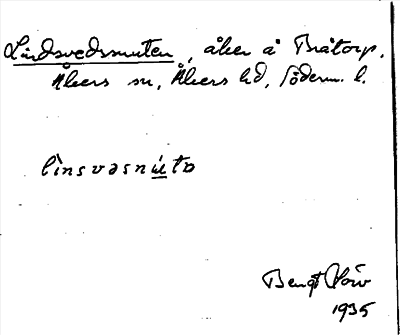 Lindsvedsnuten, åker å Bråtorp,
Åkers sn, Åkers hd, Söderm. l.
lìnsvəsnù̲tə
Bengt Löw
1935